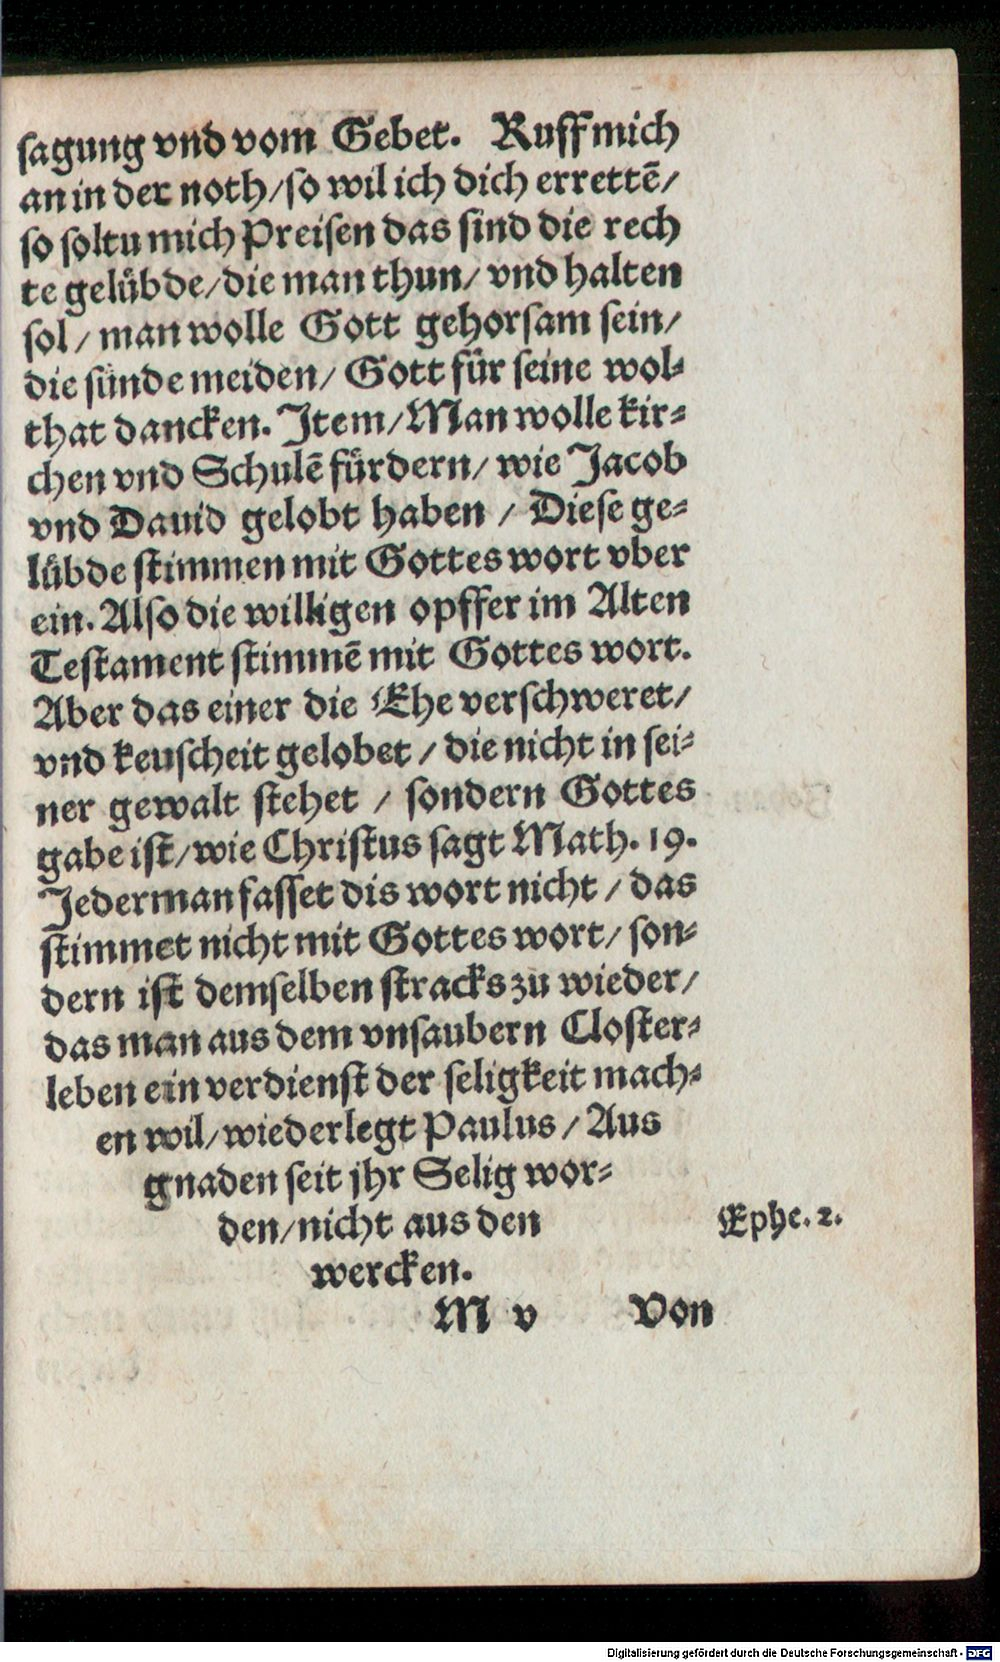 sagung vnd vom Gebet. Ruff mich
an in der noth/so wil ich dich errettē/
so soltu mich Preisen das sind die rech
te gelübde/die man thun/ vnd halten
sol/ man wolle Gott gehorsam sein/
die sünde meiden/ Gott für seine wol-
that dancken. Item/Man wolle kir-
chen vnd Schulē fürdern/ wie Jacob
vnd Dauid gelobt haben / Diese ge-
lübde stimmen mit Gottes wort vber
ein. Also die willigen opffer im Alten
Testament stimmē mit Gottes wort.
Aber das einer die Ehe verschweret/
vnd keuscheit gelobet / die nicht in sei-
ner gewalt stehet / sondern Gottes
gabe ist/wie Christus sagt Math. 19.
Jederman fasset dis wort nicht / das
stimmet nicht mit Gottes wort/ son-
dern ist demselben stracks zu wieder/
das man aus dem vnsaubern Closter-
leben ein verdienst der seligkeit mach-
en wil/wiederlegt Paulus / Aus
gnaden seit jhr Selig wor-
den/nicht aus den
wercken.
Ephe. 2.
M v Von
Digitalisierung gefördert durch die Deutsche Forschungsgemeinschaft - DFG